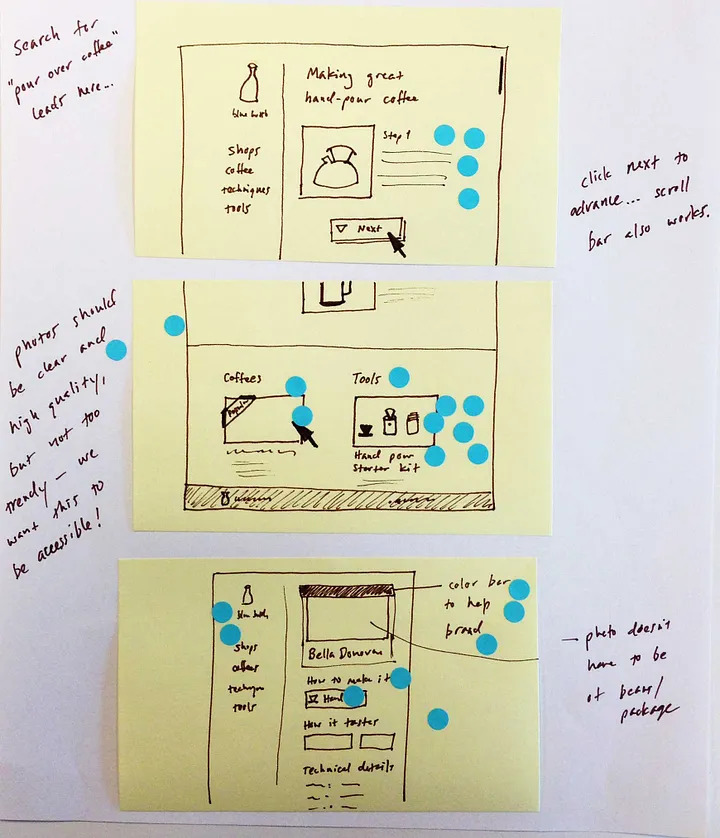 Search for
"pour over coffee"
leads here...
Making great
hand-pour coffee
Step 1
shops
coffee
techniques
tools
Next
click next to
advance... scroll
bar also works.
photos should
be clear and
high quality,
but not too
trendy – we
want this to
be accessible!
Coffees
Popular
Tools
Hand pour
Starter kit
shops
coffees
tools
color bar
to help
brand
Bella Donovan
How to make it
Hand
How it tastes
Technical details
– photo doesn't
have to be
of beans/
package